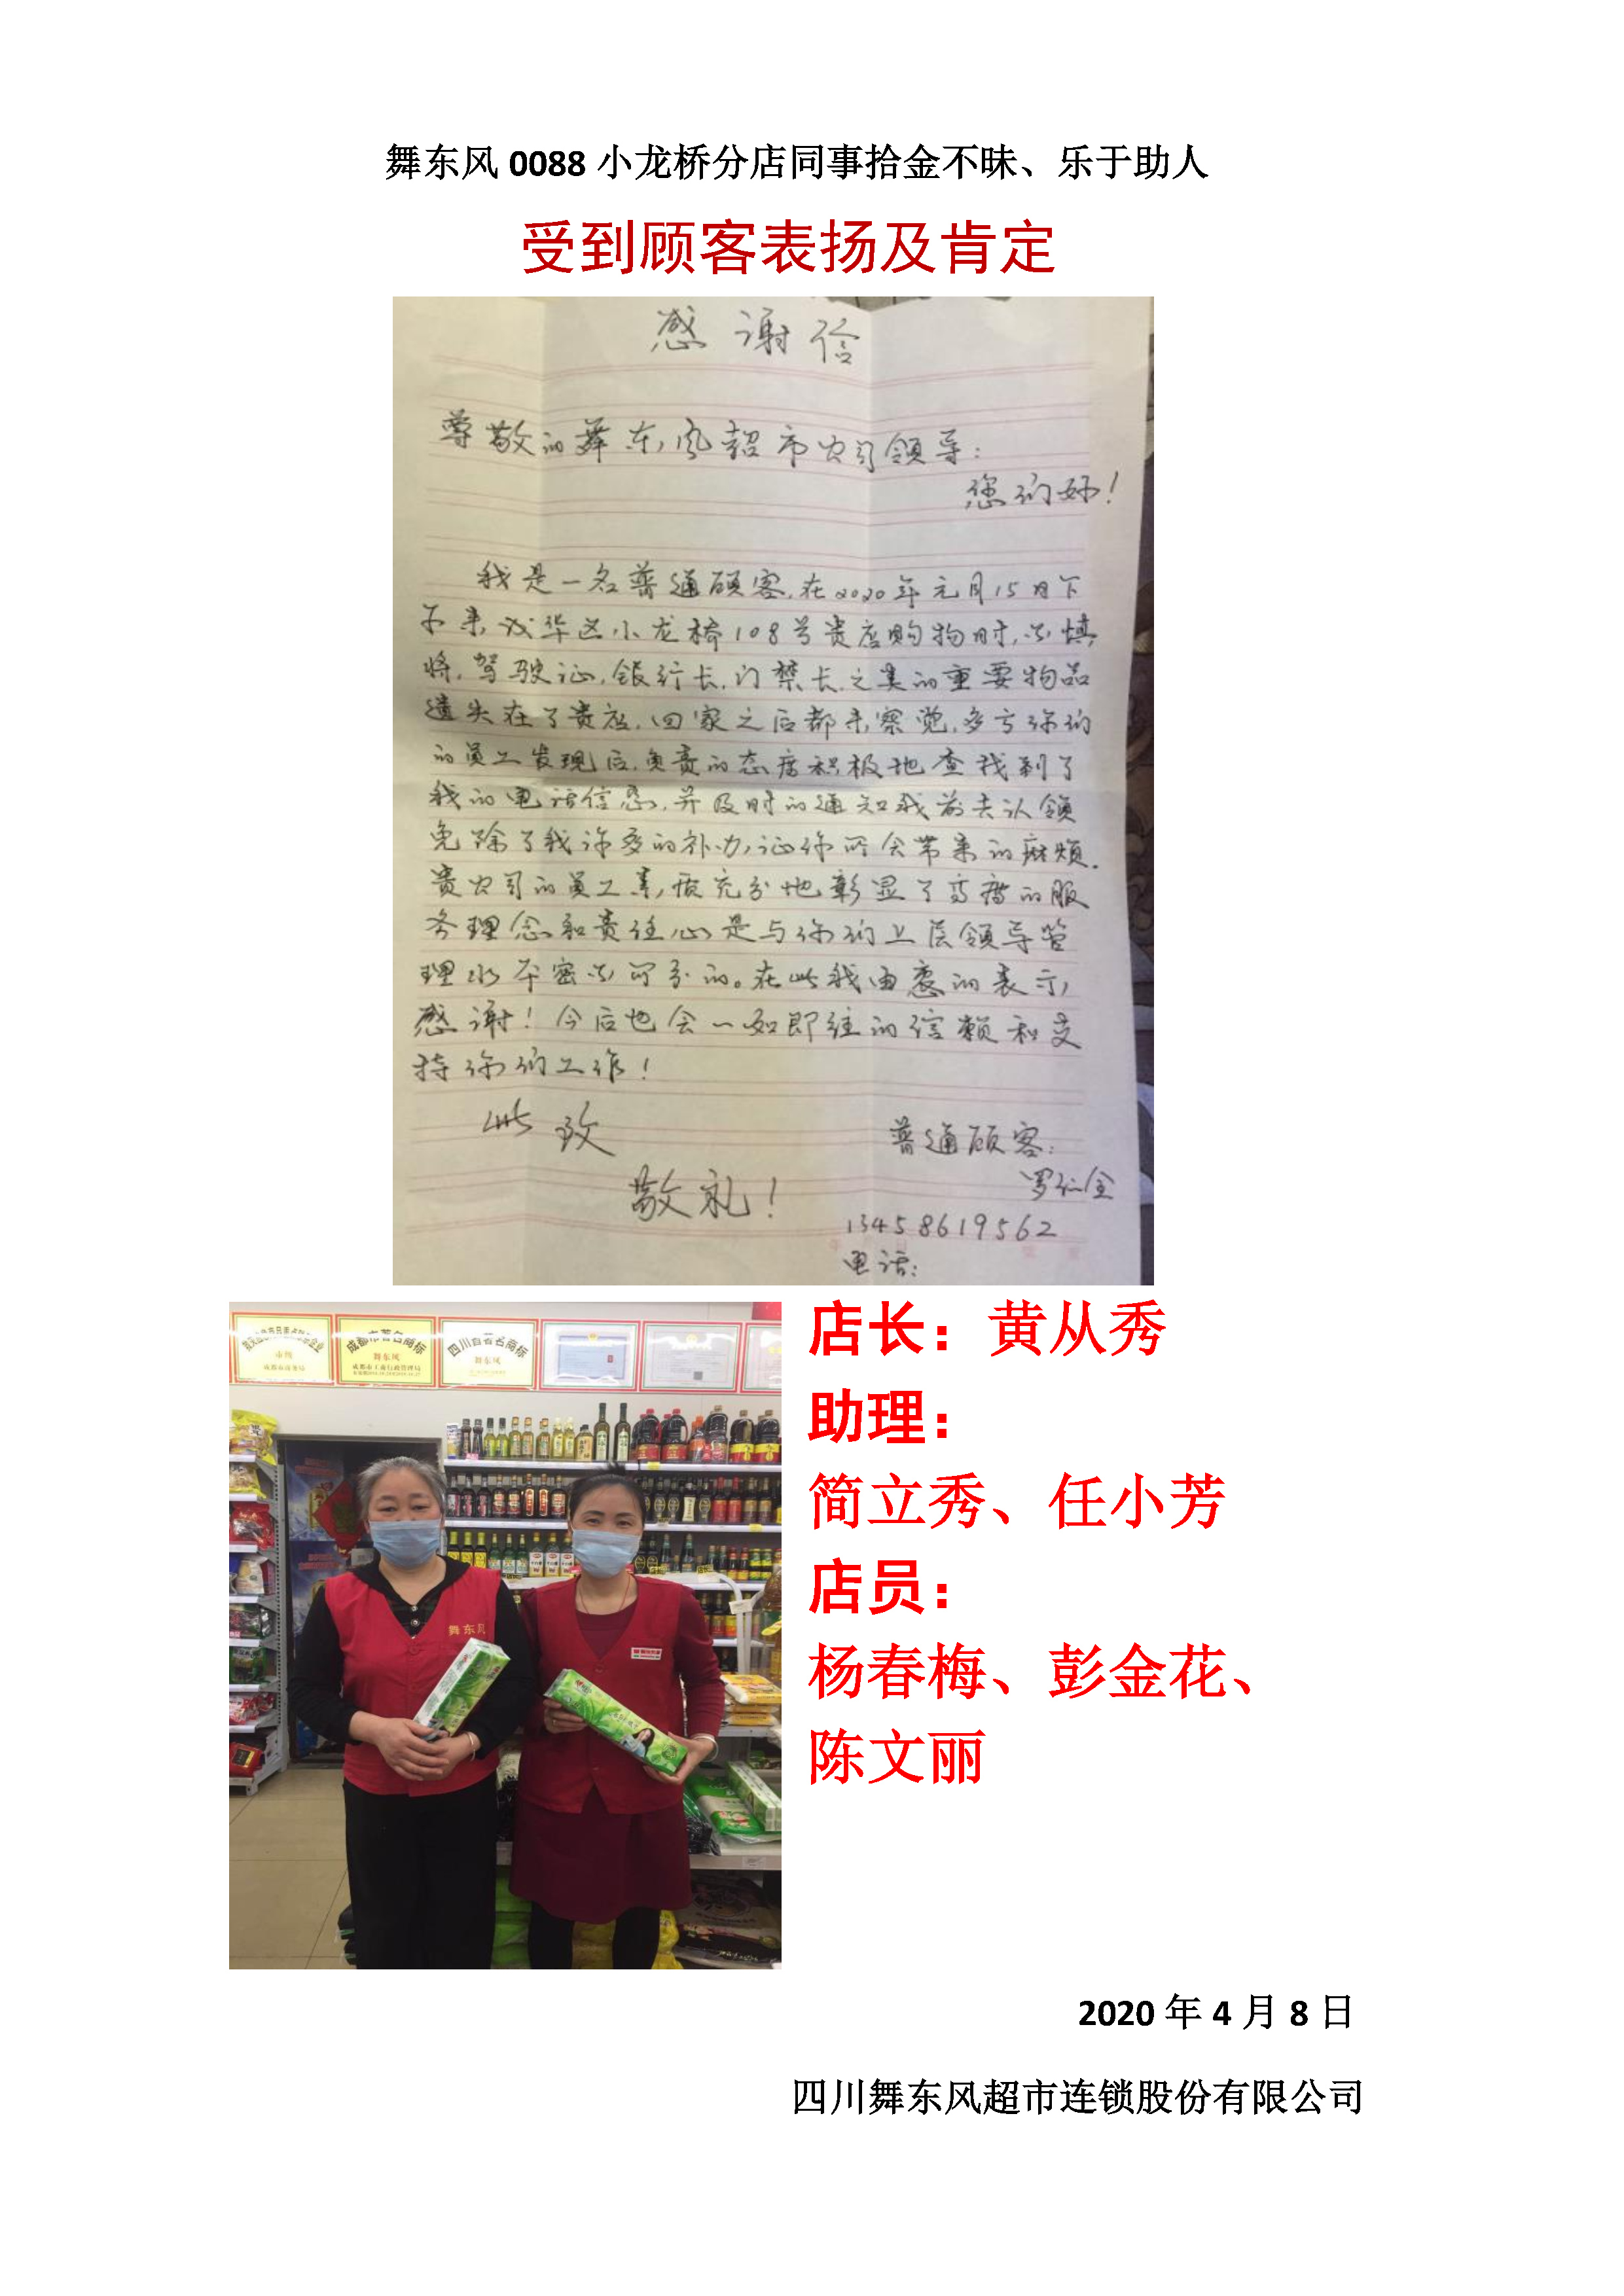 舞东风 0088 小龙桥分店同事拾金不昧、乐于助人
受到顾客表扬及肯定
感谢信
尊敬的舞东风超市公司领导：
您们好！
我是一名普通顾客，在2020年元月15日下
午来成华区小龙桥108号贵店购物时，不慎
将，驾驶证，银行卡，门禁卡，之类的重要物品
遗失在了贵店，回家之后都未察觉，多亏你们
的员工发现后，负责的态度积极地查找到了
我的电话信息，并及时的通知我前去认领
免除了我许多的补办，证件所会带来的麻烦。
贵公司的员工素质充分地彰显了高档的服
务理念和责任心是与你们上层领导管
理水平密不可分的。在此我由衷的表示，
感谢！今后也会一如即往的信赖和支
持你们工作！
此致
敬礼！
普通顾客：
罗仁全
13458619562
电话：
成都市著名商标
舞东风
成都市工商行政管理局
四川省著名商标
舞东风
舞东风
店长：黄从秀
助理：
简立秀、任小芳
店员：
杨春梅、彭金花、
陈文丽
2020 年 4 月 8 日
四川舞东风超市连锁股份有限公司